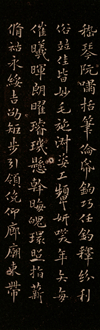 嵇琴阮嘯恬筆倫帋鈞巧任釣釋紛利
俗竝佳皆妙毛施淑姿工顰妍笑年矢每
催曦暉朗曜璿璣懸斡晦魄環照指薪
脩祜永綏吉劭矩步引領俯仰廊廟束帶